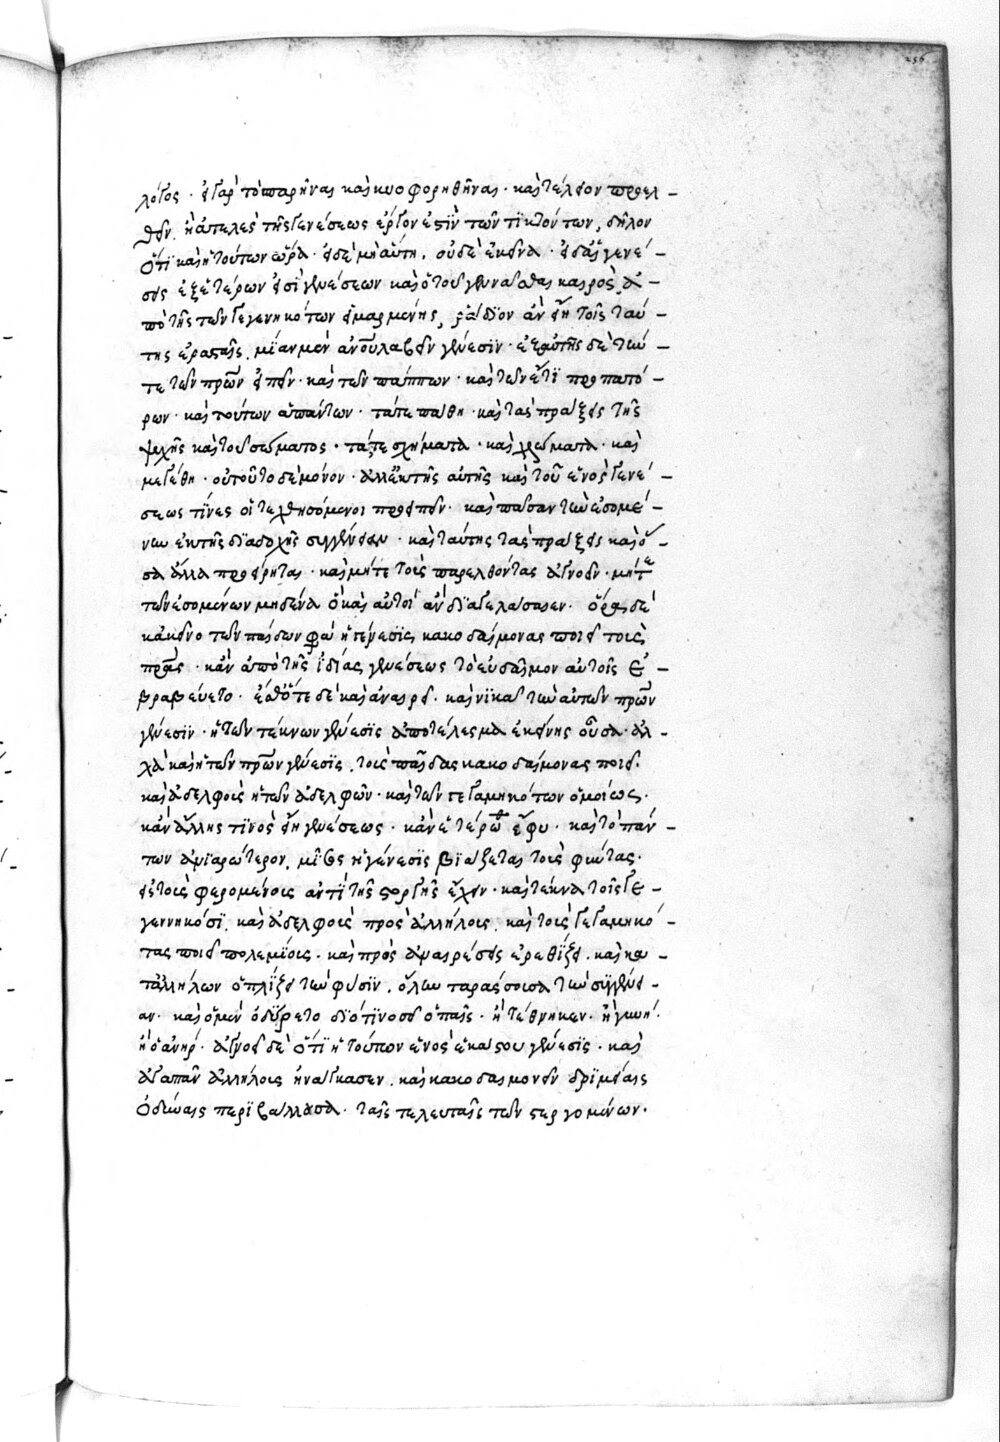 256
λόγος· εἰ γὰρ τὸ σπαρῆναι καὶ κυοφορηθῆναι· καὶ τέλειον προελ-
θεῖν. ἢ ἀτελὲς τῆς γενέσεως ἔργον ἐστὶν τῶν τικτόντων, δῆλον
ὅτι καὶ ἡ τούτων ὥρα· εἰ δὲ μὴ αὕτη, οὐδὲ ἐκεῖνα· εἰ δὲ αἱ γενέ-
σεις ἐξ ἑτέρων εἰσὶ γενέσεων καὶ ὁ τοῦ γεννᾶσθαι καιρὸς ἀ-
πὸ τῆς τῶν γεγεννηκότων εἱμαρμένης, ῥᾴδιον ἂν εἴη τοῖς ταύ-
της ἐρασταῖς, μίαν μὲν ἀνθυλαβεῖν γένεσιν· ἐξ αὐτῆς δὲ τήν
τε τῶν πρῶν εἰπεῖν· καὶ τῶν πάππων· καὶ τῶν ἔτι προπατό-
ρων· καὶ τούτων ἁπάντων· τά τε πάθη· καὶ τὰς πράξεις τῆς
ψυχῆς καὶ τοῦ σώματος· τά τε σχήματα· καὶ χρώματα· καὶ
μεγέθη· οὐ τοῦτο δὲ μόνον· ἀλλ' ἐκ τῆς αὐτῆς καὶ τοῦ ἑνὸς γενέ-
σεως τίνες οἱ τεχθησόμενοι προειπεῖν· καὶ πᾶσαν τὴν ἐσομέ-
νην ἐκ τῆς διαδοχῆς συγγένειαν· καὶ ταύτης τὰς πράξεις καὶ ὅ-
σα ἄλλα προείρηται· καὶ μήτε τοὺς παρελθόντας ἀγνοεῖν· μήτε
τῶν ἐσομένων μηδένα ὃ καὶ αὐτοὶ ἂν διαγελάσαιεν· ὅρα δὲ
κἀκεῖνο τῶν παίδων φησὶ ἡ γένεσις κακοδαίμονας ποιεῖ τοὺς
πρας· κἂν ἀπὸ τῆς ἰδίας γενέσεως τὸ εὔδαιμον αὐτοῖς ἐ-
βραβεύετο· ἔσθ' ὅτε δὲ καὶ ἀναιρεῖ· καὶ νικᾷ τὴν αὐτῶν πρῶν
γένεσιν· ἡ τῶν τέκνων γένεσις ἀποτέλεσμα ἐκείνης οὖσα· ἀλ-
λὰ καὶ ἡ τῶν πρῶν γένεσις, τοὺς παῖδας κακοδαίμονας ποιεῖ·
καὶ ἀδελφοὺς ἡ τῶν ἀδελφῶν· καὶ τῶν γεγαμηκότων ὁμοίως·
κἂν ἄλλης τινὸς εἴη γενέσεως· κἂν ἑτέρωθεν ἔφυ· καὶ τὸ πάν-
των ἀνιαρώτερον, μισεῖν ἡ γένεσις βιάζεται τοὺς φύντας·
εἰ τοὺς φερομένους ἀντὶ τῆς στοργῆς ἔχειν· καὶ τέκνα τοῖς γε-
γεννηκόσι, καὶ ἀδελφοὺς πρὸς ἀλλήλους, καὶ τοὺς γεγαμηκό-
τας ποιεῖ πολεμίους· καὶ πρὸς ἀναιρέσεις ἐρεθίζει· καὶ κα-
τ' ἀλλήλων ὁπλίζει τὴν φύσιν, ὅλην ταράσσουσα τὴν συγγένει-
αν· καὶ ὁ μὲν ὀδύρετο διότι νοσεῖ ὁ παῖς· ἢ τέθνηκεν· ἢ γυνή·
ἢ ὁ ἀνήρ· ἀγνοεῖ δὲ ὅτι ἡ τούτων ἑνὸς ἑκάστου γένεσις· καὶ
ἀγαπᾶν ἀλλήλους ἠνάγκασεν, καὶ κακοδαιμονεῖν δριμείαις
ὀδύναις περιβάλλουσα· ταῖς τελευταῖς τῶν στεργομένων·